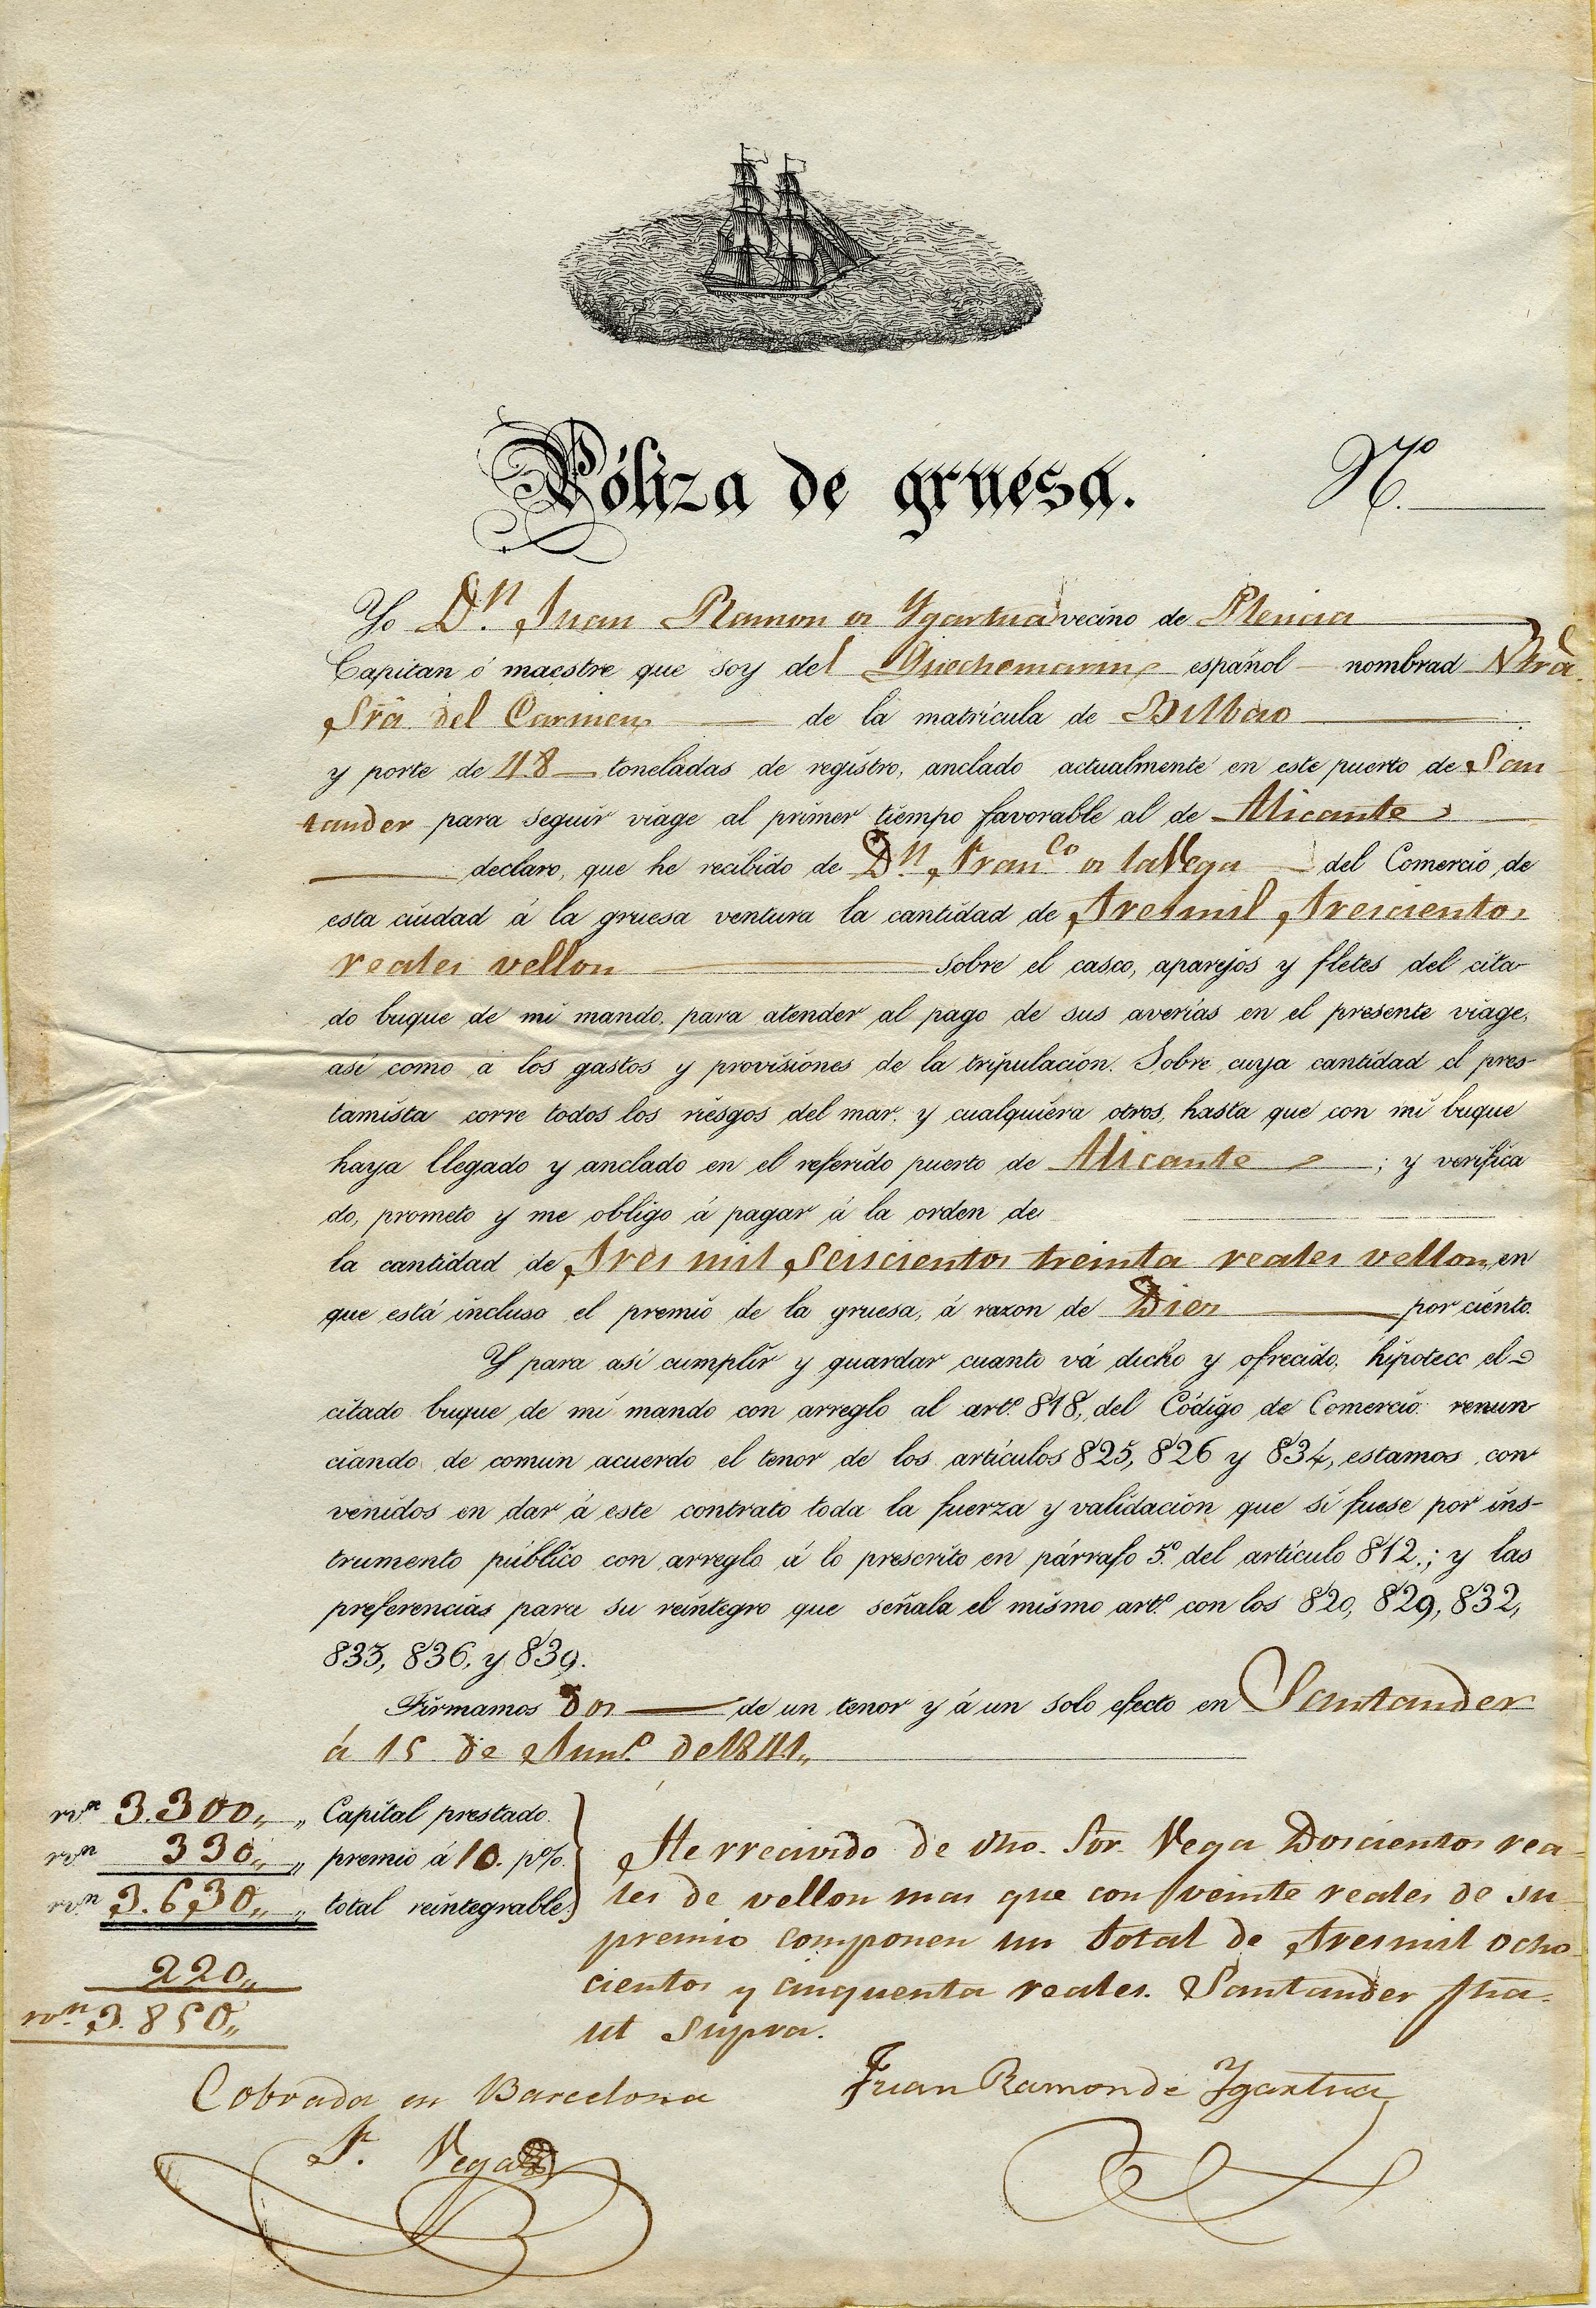 Póliza de gruesa. Nº.
Yo Dn. Juan Ramon de Ygartua vecino de Plencia
Capitan ó maestre que soy del Quechemarin español nombrad Ntrâ.
Srâ. del Carmen de la matrícula de Bilbao
y porte de 48 toneladas de registro, anclado actualmente en este puerto de San
tander para seguir viage al primer tiempo favorable al de Alicante
declaro, que he recibido de Dn. Franco. de la Vega del Comercio de
esta ciudad á la gruesa ventura la cantidad de tresmil, trescientos
reales vellon sobre el casco, aparejos y fletes del cita-
do buque de mi mando, para atender al pago de sus averías en el presente viage,
así como á los gastos y provisiones de la tripulacion. Sobre cuya cantidad el pres-
tamista corre todos los riesgos del mar, y cualquiera otros, hasta que con mi buque
haya llegado y anclado en el referido puerto de Alicante ; y verifica
do, prometo y me obligo á pagar á la orden de
la cantidad de tres mil seiscientos treinta reales vellon, en
que está incluso el premio de la gruesa, á razon de Diez por ciento.
Y para así cumplir y guardar cuanto vá dicho y ofrecido, hipoteco el
citado buque de mi mando con arreglo al arto. 818, del Código de Comercio: renun
ciando de comun acuerdo el tenor de los artículos 825, 826 y 834, estamos con
venidos en dar á este contrato toda la fuerza y validacion que si fuese por ins-
trumento público con arreglo á lo prescrito en párrafo 5º. del artículo 812.; y las
preferencias para su reintegro que señala el mismo arto. con los 820, 829, 832,
833, 836, y 839.
Firmamos dos de un tenor y á un solo efecto en Santander
á 15 de Juno. de 1841,,
rvn 3.300,, ,, Capital prestado.
rvn 330,, ,, premio á 10. p%.
rvn. 3.630,, ,, total reintegrable
220,,
rvn. 3.850,,
He rrecivido de dho. Sor. Vega Doscientos rea-
les de vellon mas que con veinte reales de su
premio componen un total de tresmil ocho-
cientos y cinquenta reales. Santander fha.
ut supra.
Juan Ramon de Ygartua
Cobrada en Barcelona
F. Vega